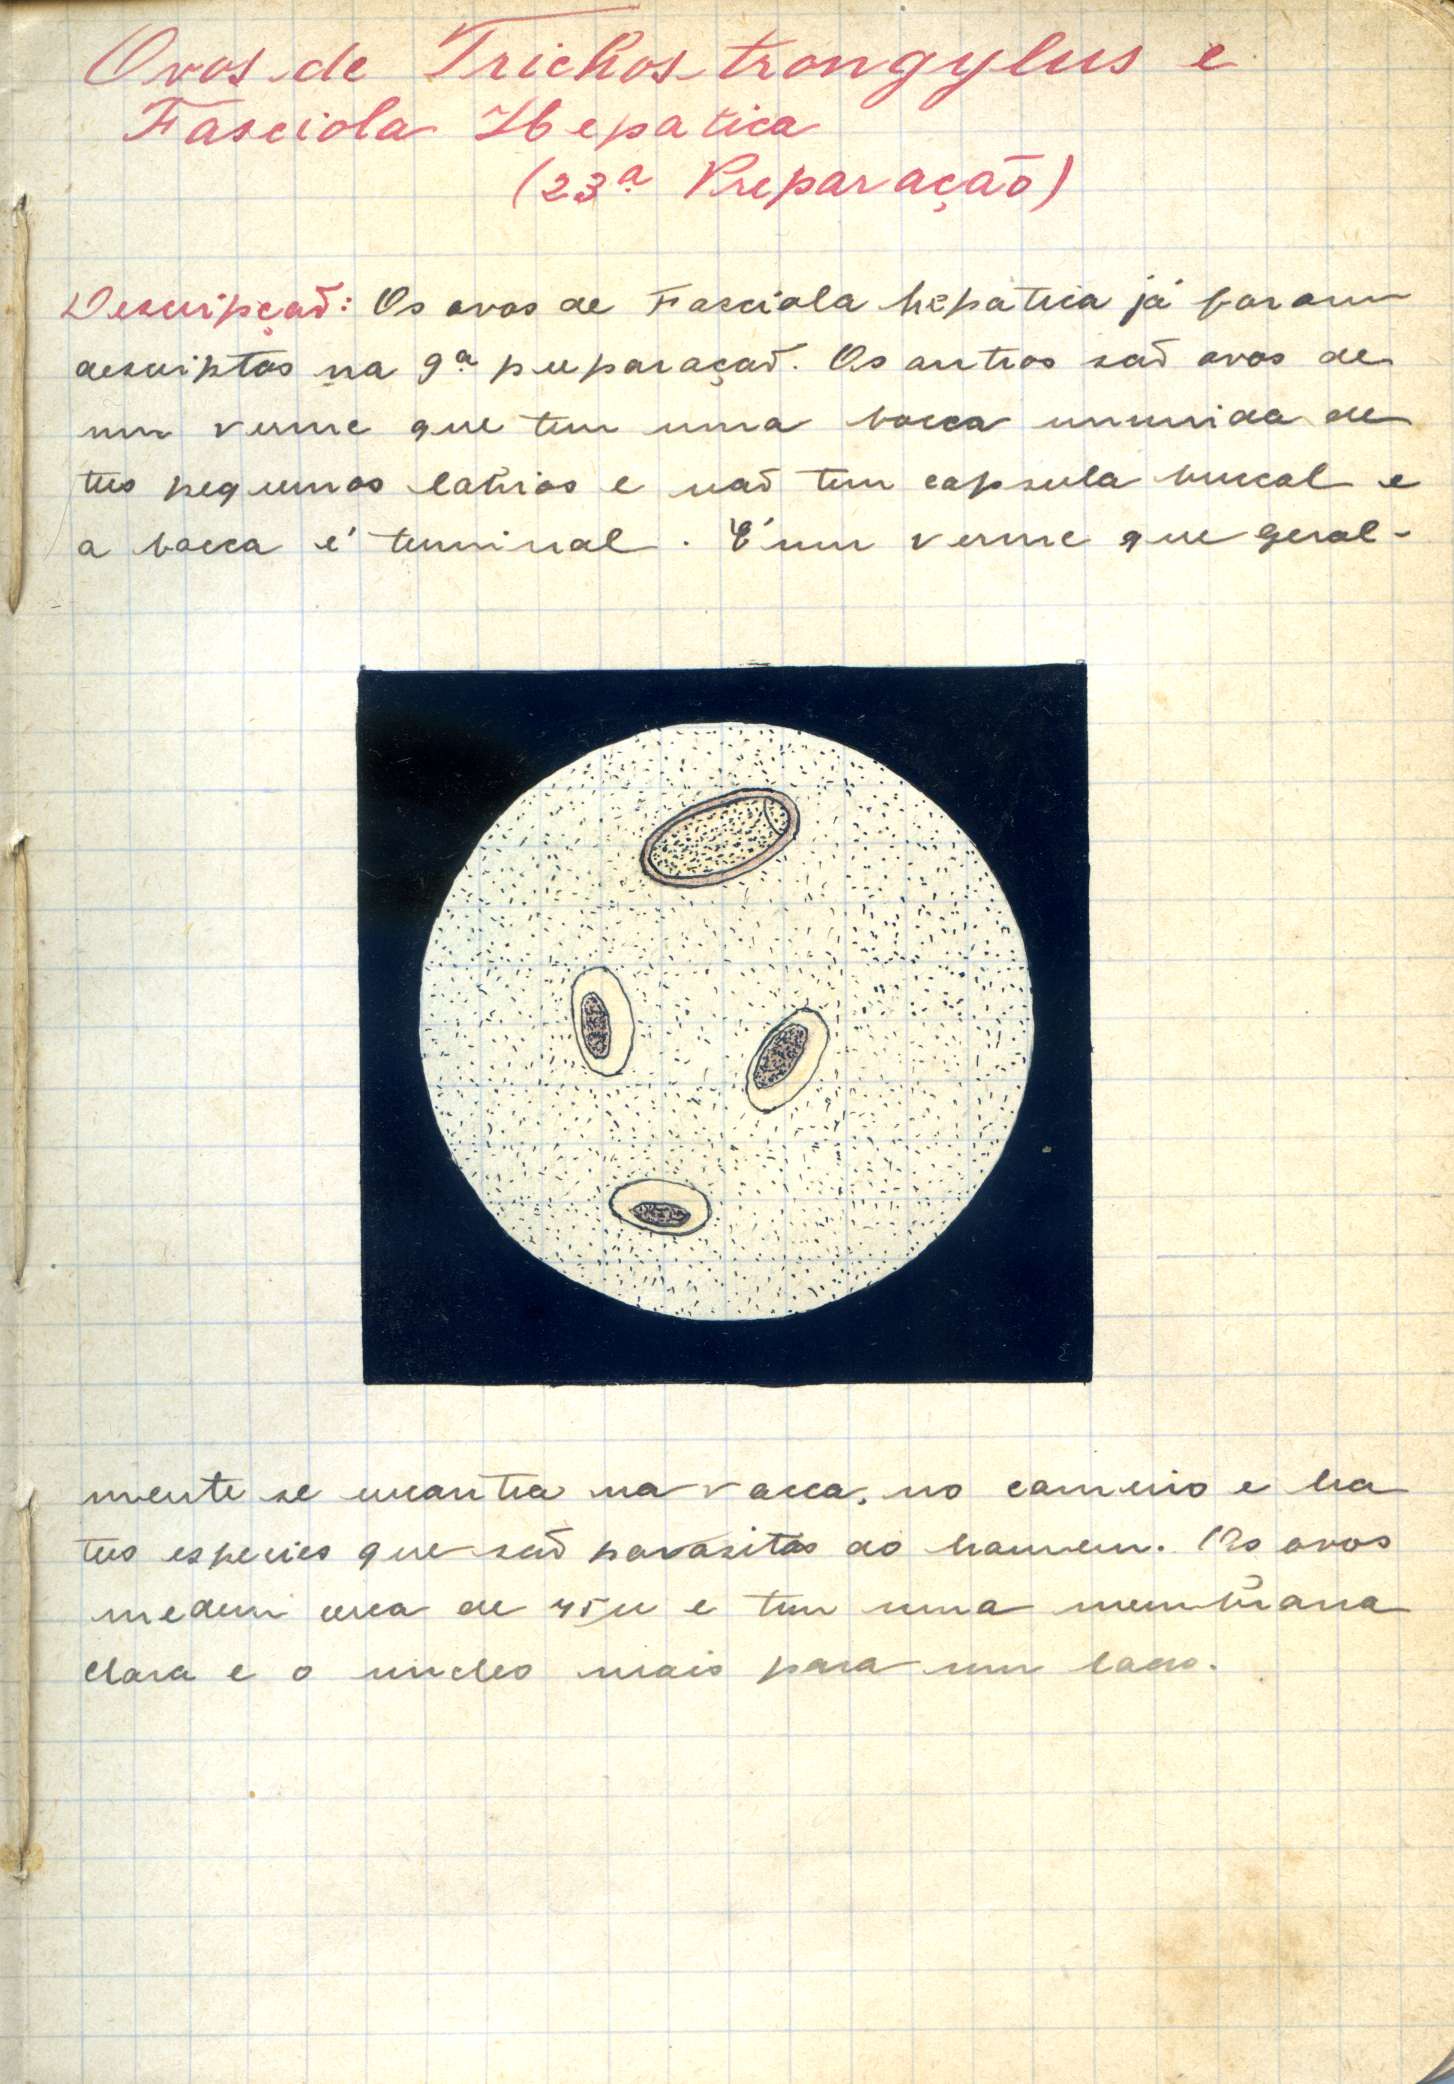 Ovos de Trichostrongylus e
Fasciola Hepatica
(23ª Preparação)
Descripção: Os ovos de Fasciola hepatica já foram
descriptos na 9ª preparação. Os outros são ovos de
um verme que tem uma bocca munida de
tres pequenos labios e não tem capsula buccal e
a bocca é terminal. É um verme que geral-
mente se encontra na vacca, no carneiro e ha
tres especies que são parasitas do homem. Os ovos
medem cerca de µ e tem uma membrana
clara e o nucleo mais para um lado.